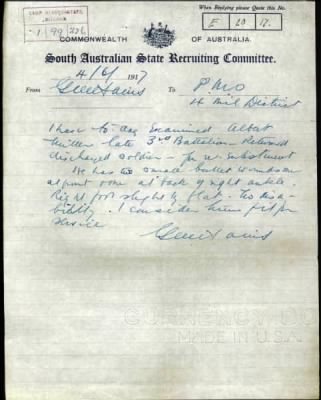 When Replying please Quote this No.
E 20 17.
1/99/276
COMMONWEALTH OF AUSTRALIA.
South Australian State Recruiting Committee.
4/6/1917
From To P M O
4 Mil District
I have to day examined Albert
late 3rd Battalion Returned
discharged soldier - for re enlistment
He has two small bullet wounds one
at front one at back of right ankle.
Right foot slightly flat. No disa-
bility. I consider him fit for
service
MADE IN U.S.A.